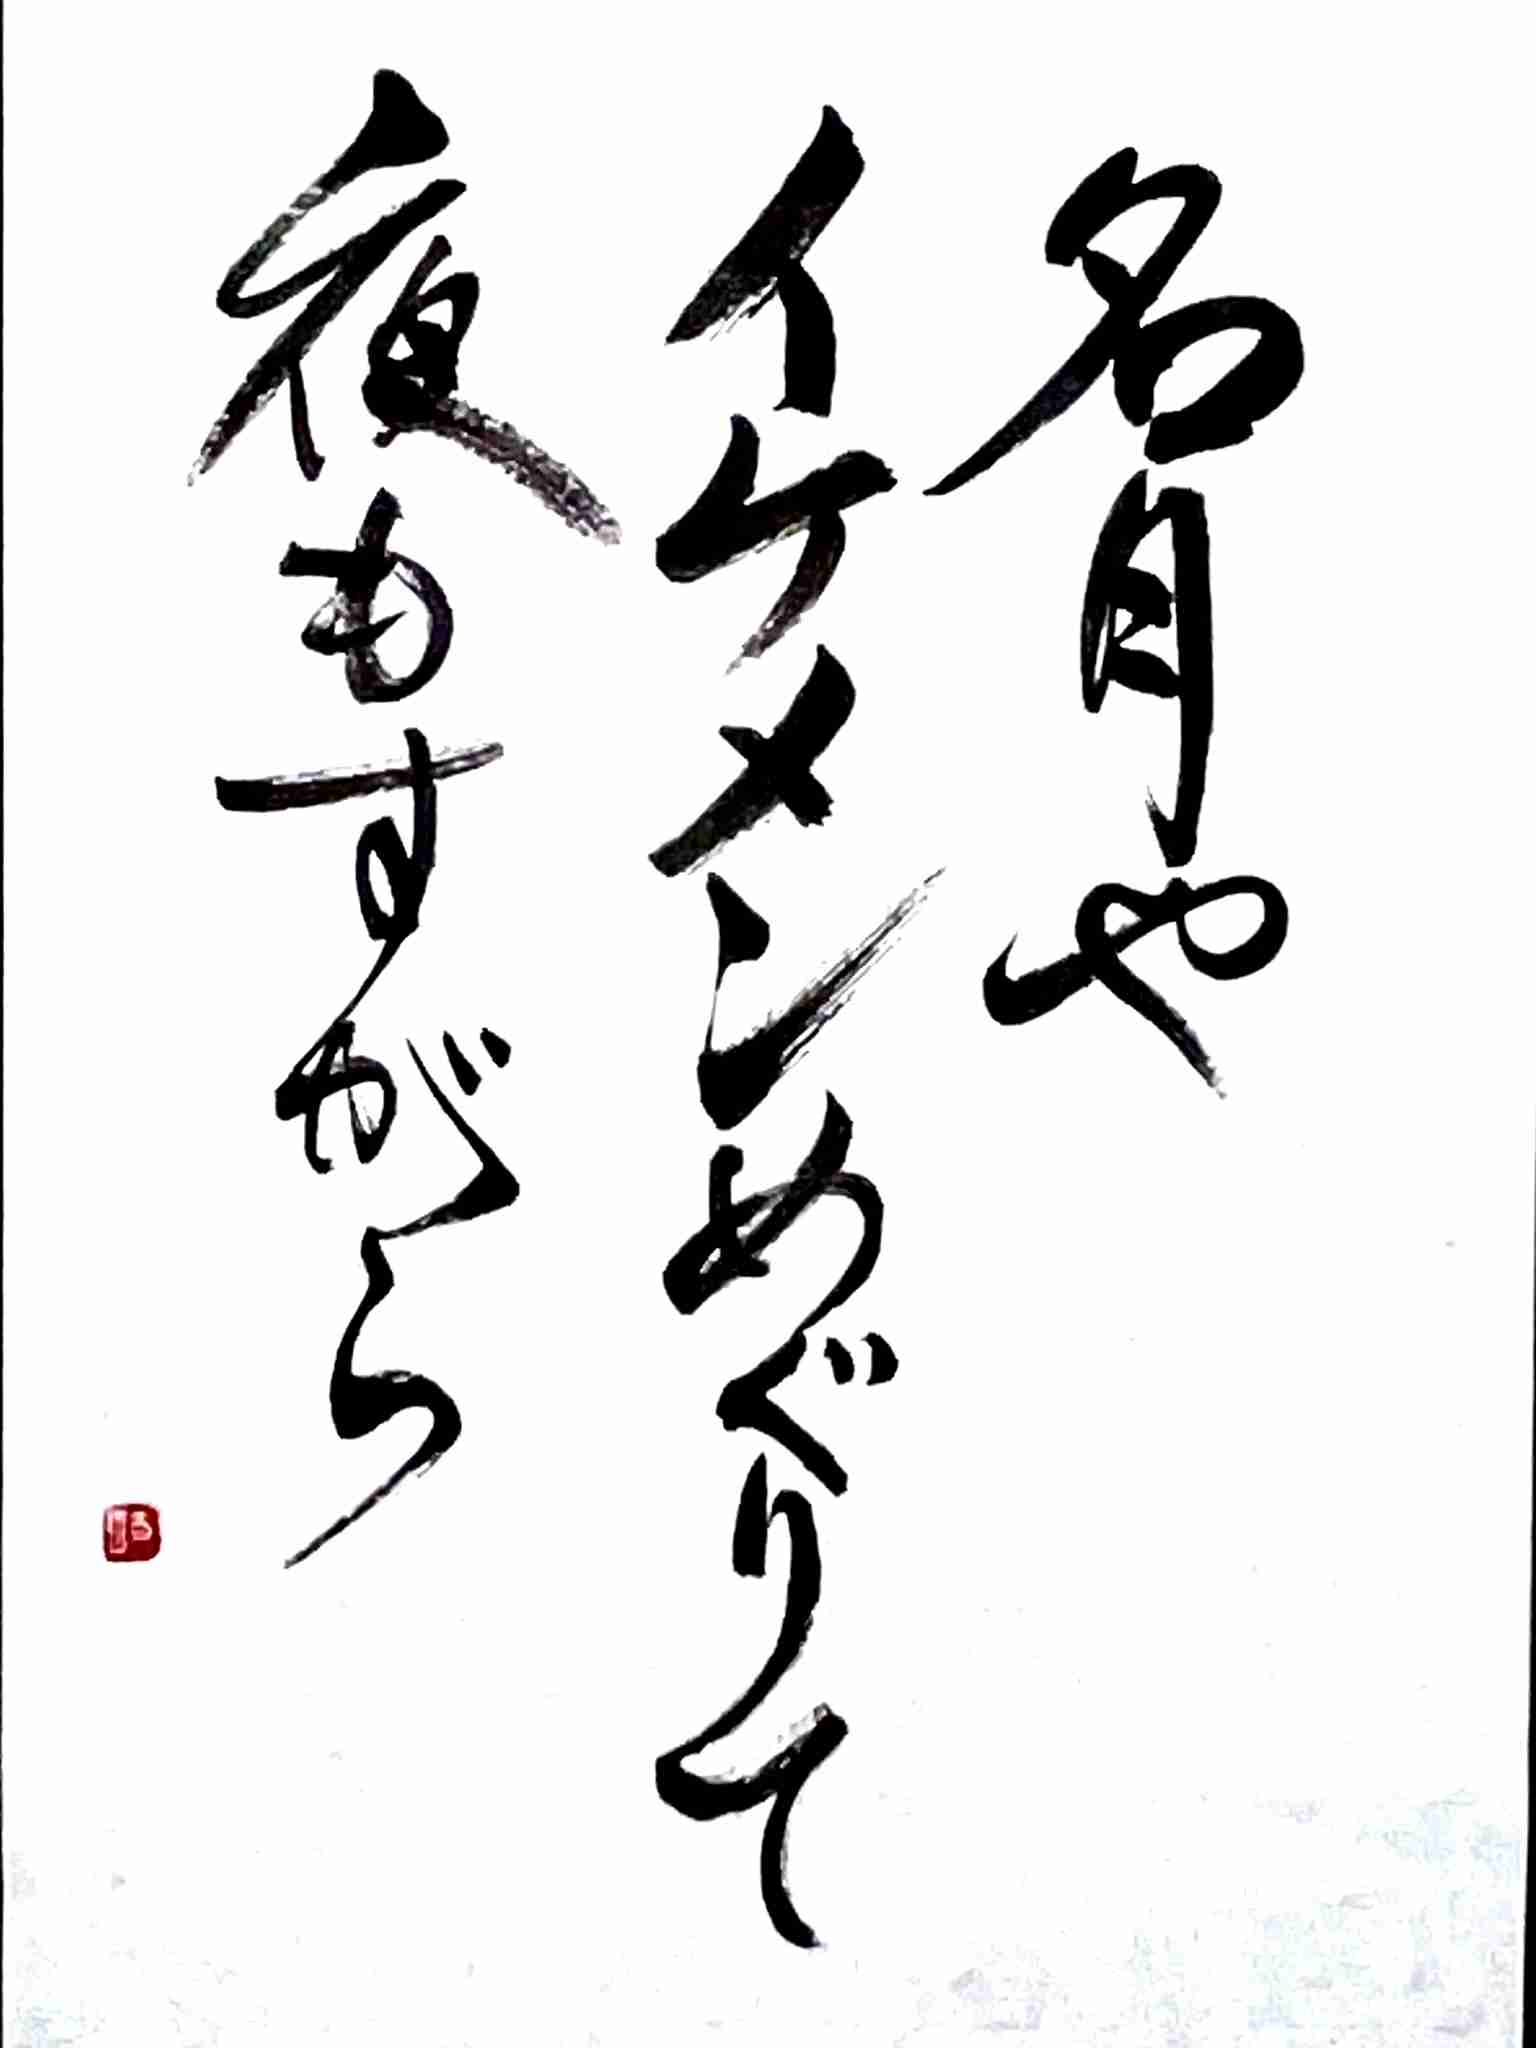 名月や
イケメンめぐりて
夜もすがら